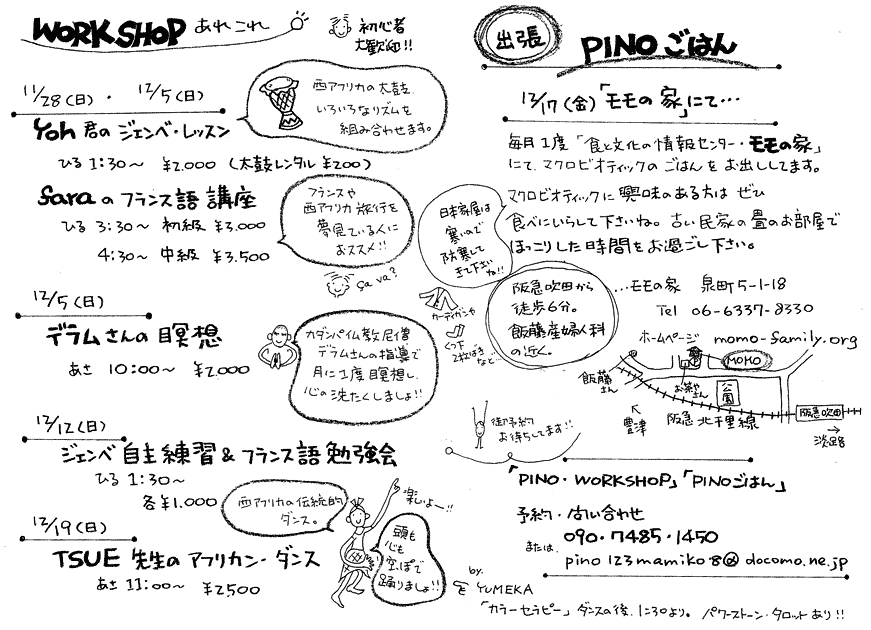 WORKSHOP あれこれ
初心者
大歓迎!!
11/28(日)・12/5(日)
Yoh君のジェンベ・レッスン
ひる 1:30〜 ¥2.000 (太鼓レンタル ¥200)
西アフリカの太鼓.
いろいろなリズムを
組み合わせます。
Saraのフランス語講座
ひる 3:30〜 初級 ¥3.000
4:30〜 中級 ¥3.500
フランスや
西アフリカ旅行を
夢見ている人に
おススメ!!
sa va?
12/5(日)
デラムさんの瞑想
あさ 10:00〜 ¥2.000
カダンパイム教尼僧
デラムさんの指導で
月に1度瞑想し、
心の洗たくしましょ!!
12/12(日)
ジェンベ自主練習&フランス語勉強会
ひる 1:30〜
各¥1.000
12/19(日)
TSUE先生のアフリカン・ダンス
あさ 11:00〜 ¥2500
西アフリカの伝統的
ダンス。
楽しいよー!!
頭も
心も
空っぽで
踊りましょ!!
出張 PINOごはん
12/17(金)「モモの家」にて…
毎月1度「食と文化の情報センター・モモの家」
にて、マクロビオティックのごはんをお出ししてます。
マクロビオティックに興味のある方はぜひ
食べにいらして下さいね。古い民家の畳のお部屋で
ほっこりした時間をお過ごし下さい。
日本家屋は
寒いので
防寒して
きて下さい
ね!!
カーディガンや
くつ下
2枚ばきなど…
阪急吹田から
徒歩6分。
飯藤産婦人科
の近く。
…モモの家 泉町5-1-18
Tel 06-6337-8330
ホームページ momo-family.org
MOMO
飯藤
さん
お茶やさん
公園
豊津
阪急北千里線
阪急吹田
淡路
御予約
お待ちしてます!!
「PINO・WORKSHOP」「PINOごはん」
予約・問い合わせ
090・7485・1450
または、
pino123mamiko8@docomo.ne.jp
by.
YUMEKA
「カラーセラピー」ダンスの後、1:30より。 パワーストーン・タロットあり!!